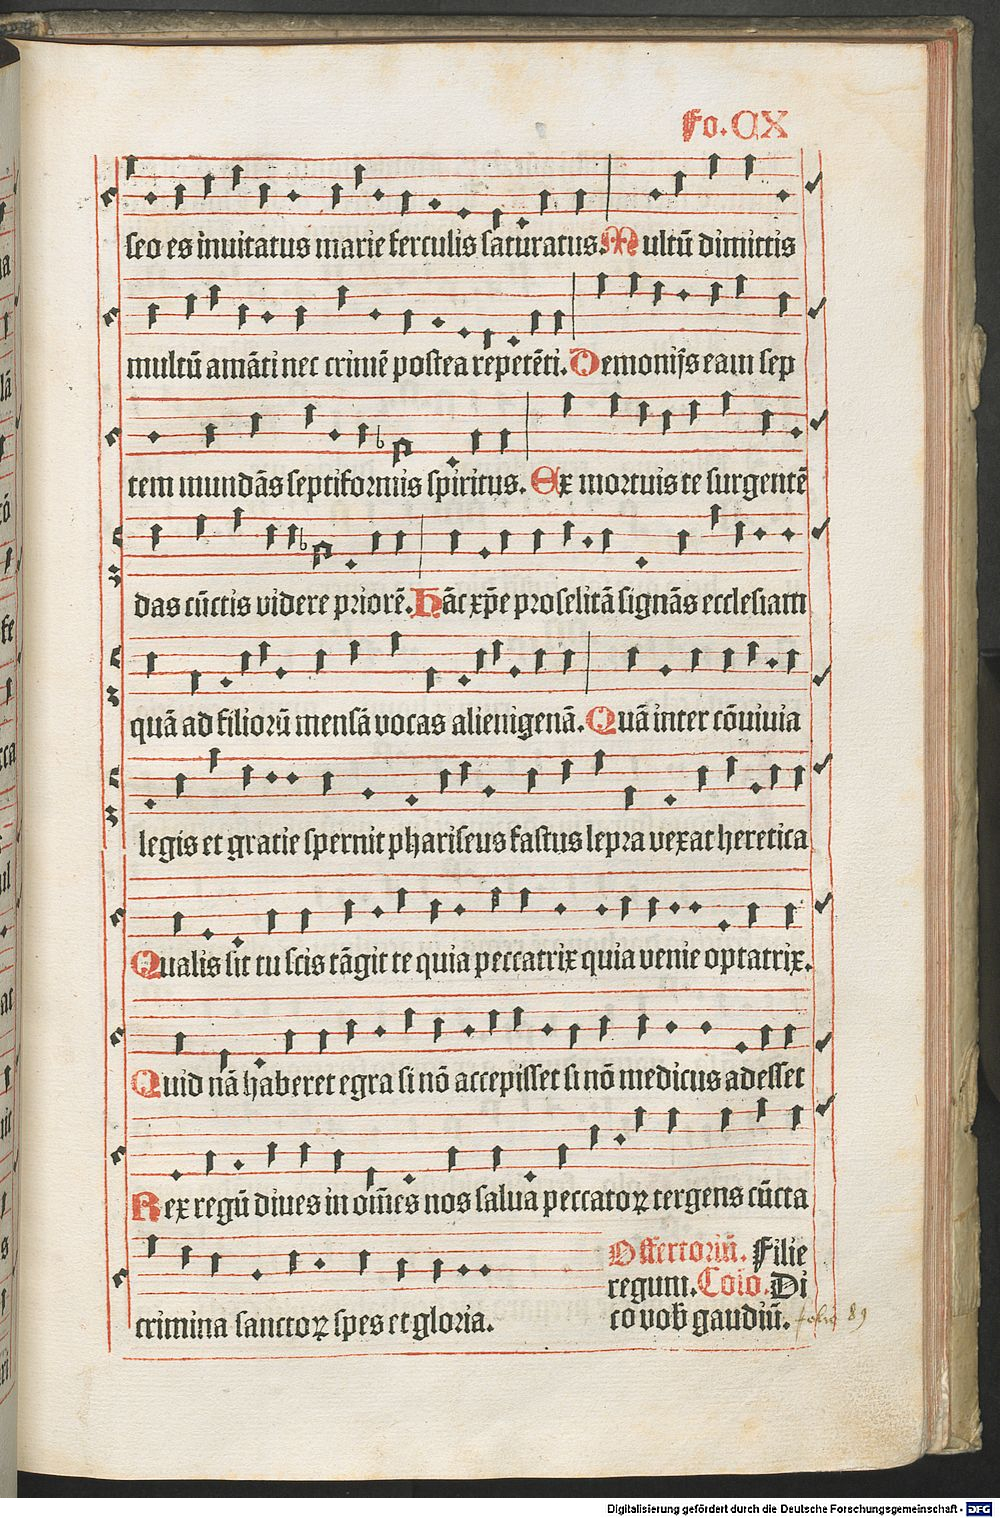 Fo. CX
seo es inuitatus marie ferculis saturatus. Multū dimittis
multū amāti nec crimē postea repetēti. Demonijs eam sep
tem mundās septiformis spiritus. Ex mortuis te surgentē
das cūctis videre priorē. Hāc xp̄e proselitā signās ecclesiam
quā ad filiorū mensā vocas alienigenā. Quā inter cōuiuia
legis et gratie spernit phariseus fastus lepra vexat heretica
Qualis sit tu scis tāgit te quia peccatrix quia venie optatrix.
Quid nā haberet egra si nō accepisset si nō medicus adesset
Rex regū diues in om̄es nos salua peccatoꝝ tergens cūcta
crimina sanctoꝝ spes et gloria.
Offertoriū. Filie
regum. Coīo. Di
co vob gaudiū. folio 89
Digitalisierung gefördert durch die Deutsche Forschungsgemeinschaft - DFG